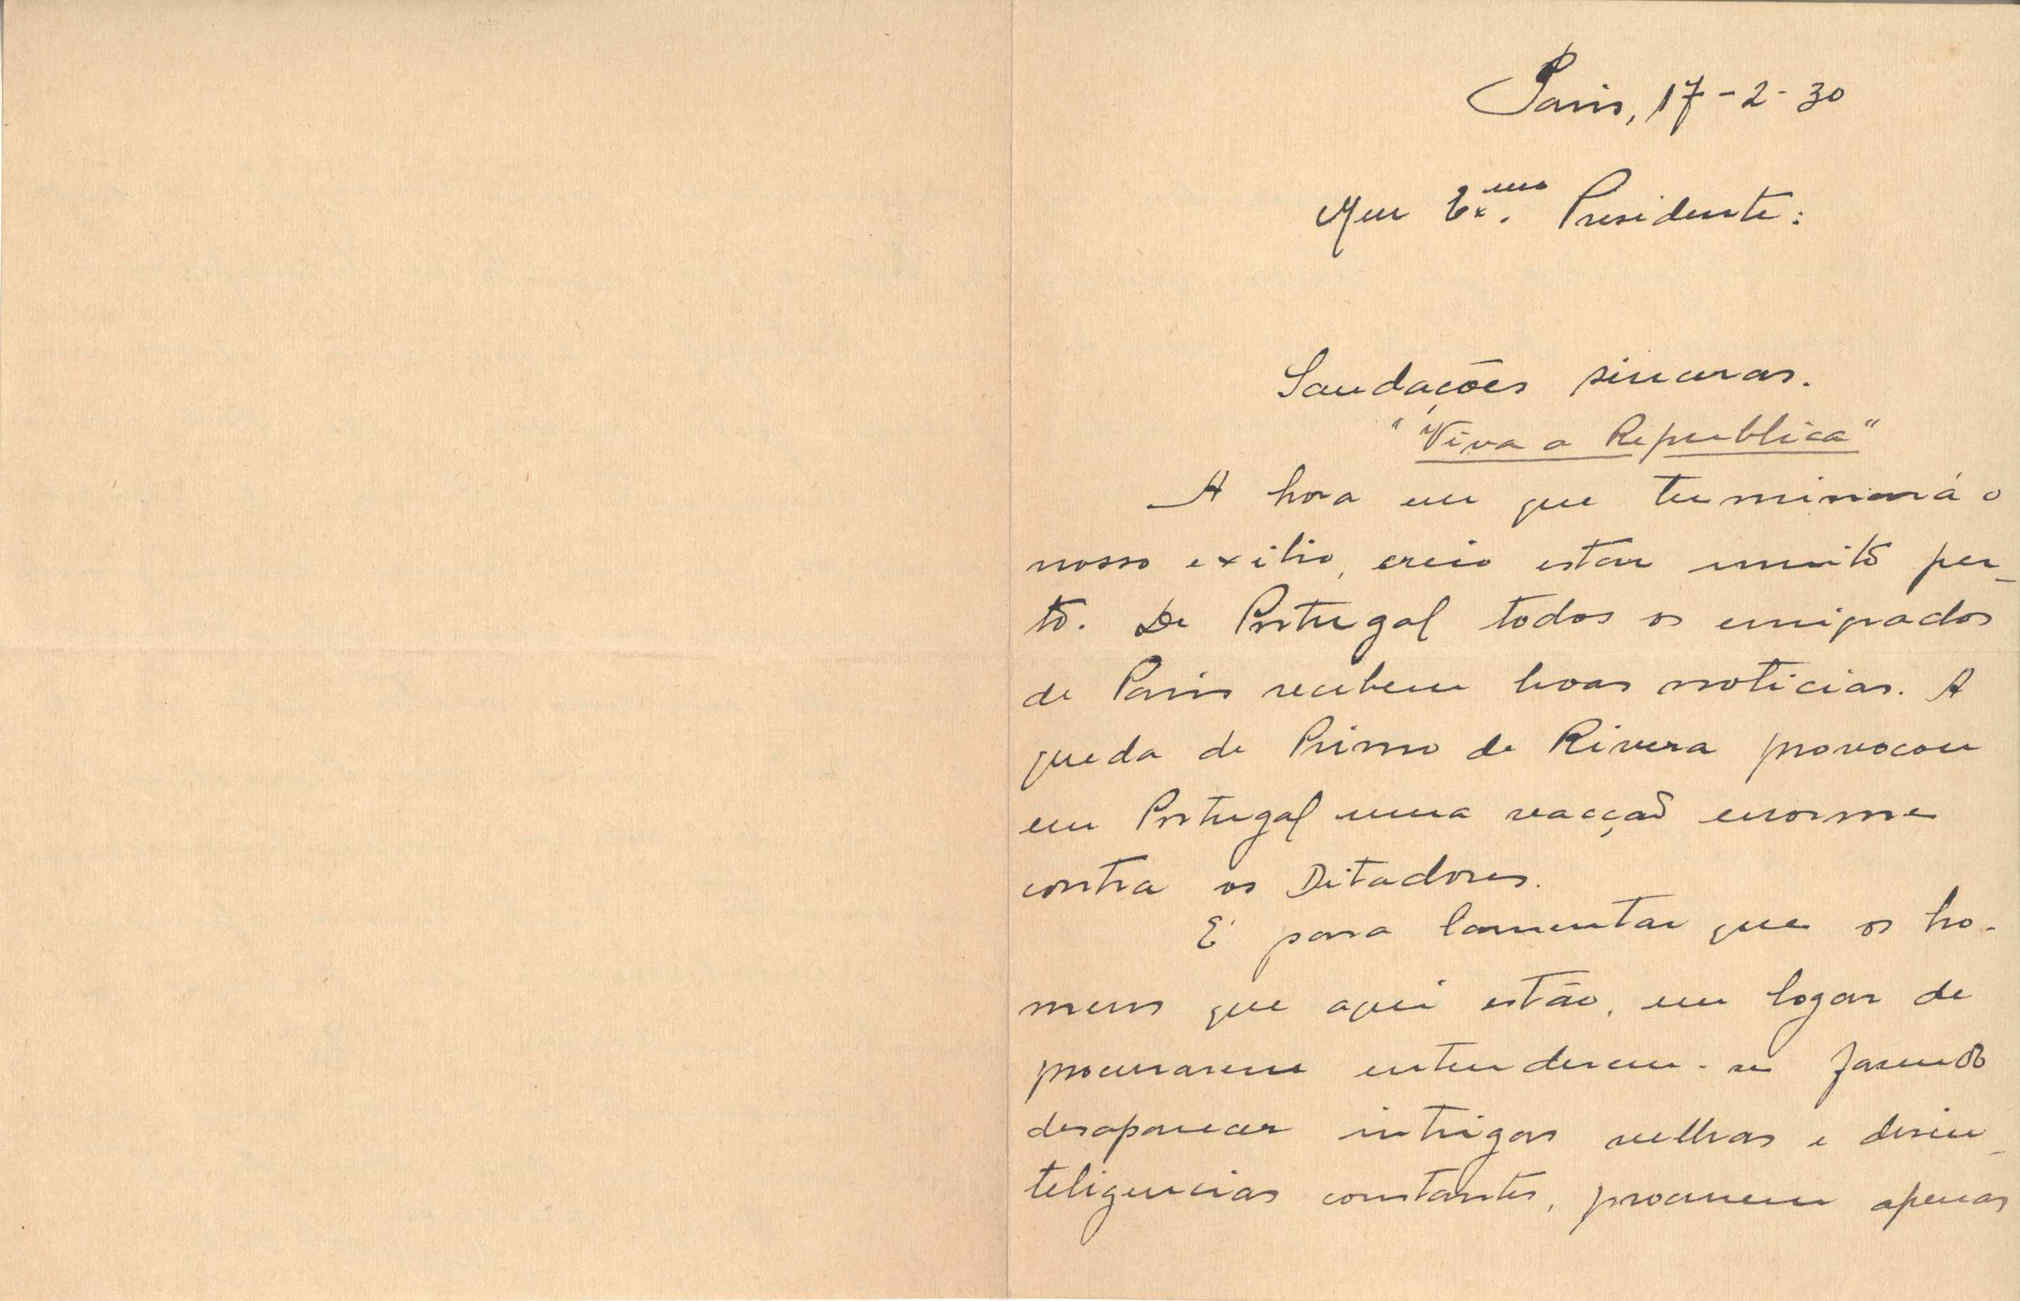 Paris, 17-2-30
Meu Ex.mo Presidente:
Saudações sinceras.
"Viva a Republica"
A hora em que terminará o
nosso exilio, creio estar muito per-
to. De Portugal todos os emigrados
de Paris recebem boas noticias. A
queda de Primo de Rivera provocou
em Portugal uma reacção enorme
contra os Ditadores.
E' para lamentar que os ho-
mens que aqui estão, em logar de
procurarem entenderem-se fazendo
desaparecer intrigas velhas e desin-
teligencias constantes, procurem apenas